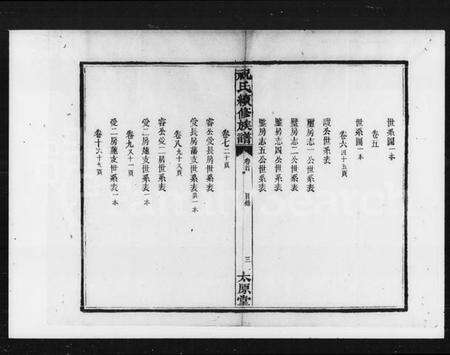 世系圖一本
卷五
世系圖一本
卷六四十五頁
公世系表
房志一公世系表
房志二公世系表
房志四公世系表
房志五公世系表
祝氏續修族譜
卷首
目錄
三
太原堂
卷七二十頁
公受長房世系表
受長房蕃支世系表一本
卷八九十八頁
公受二房世系表
受二房支世系表一本
卷九又十一頁
受二房支世系表一本
卷十六十六頁